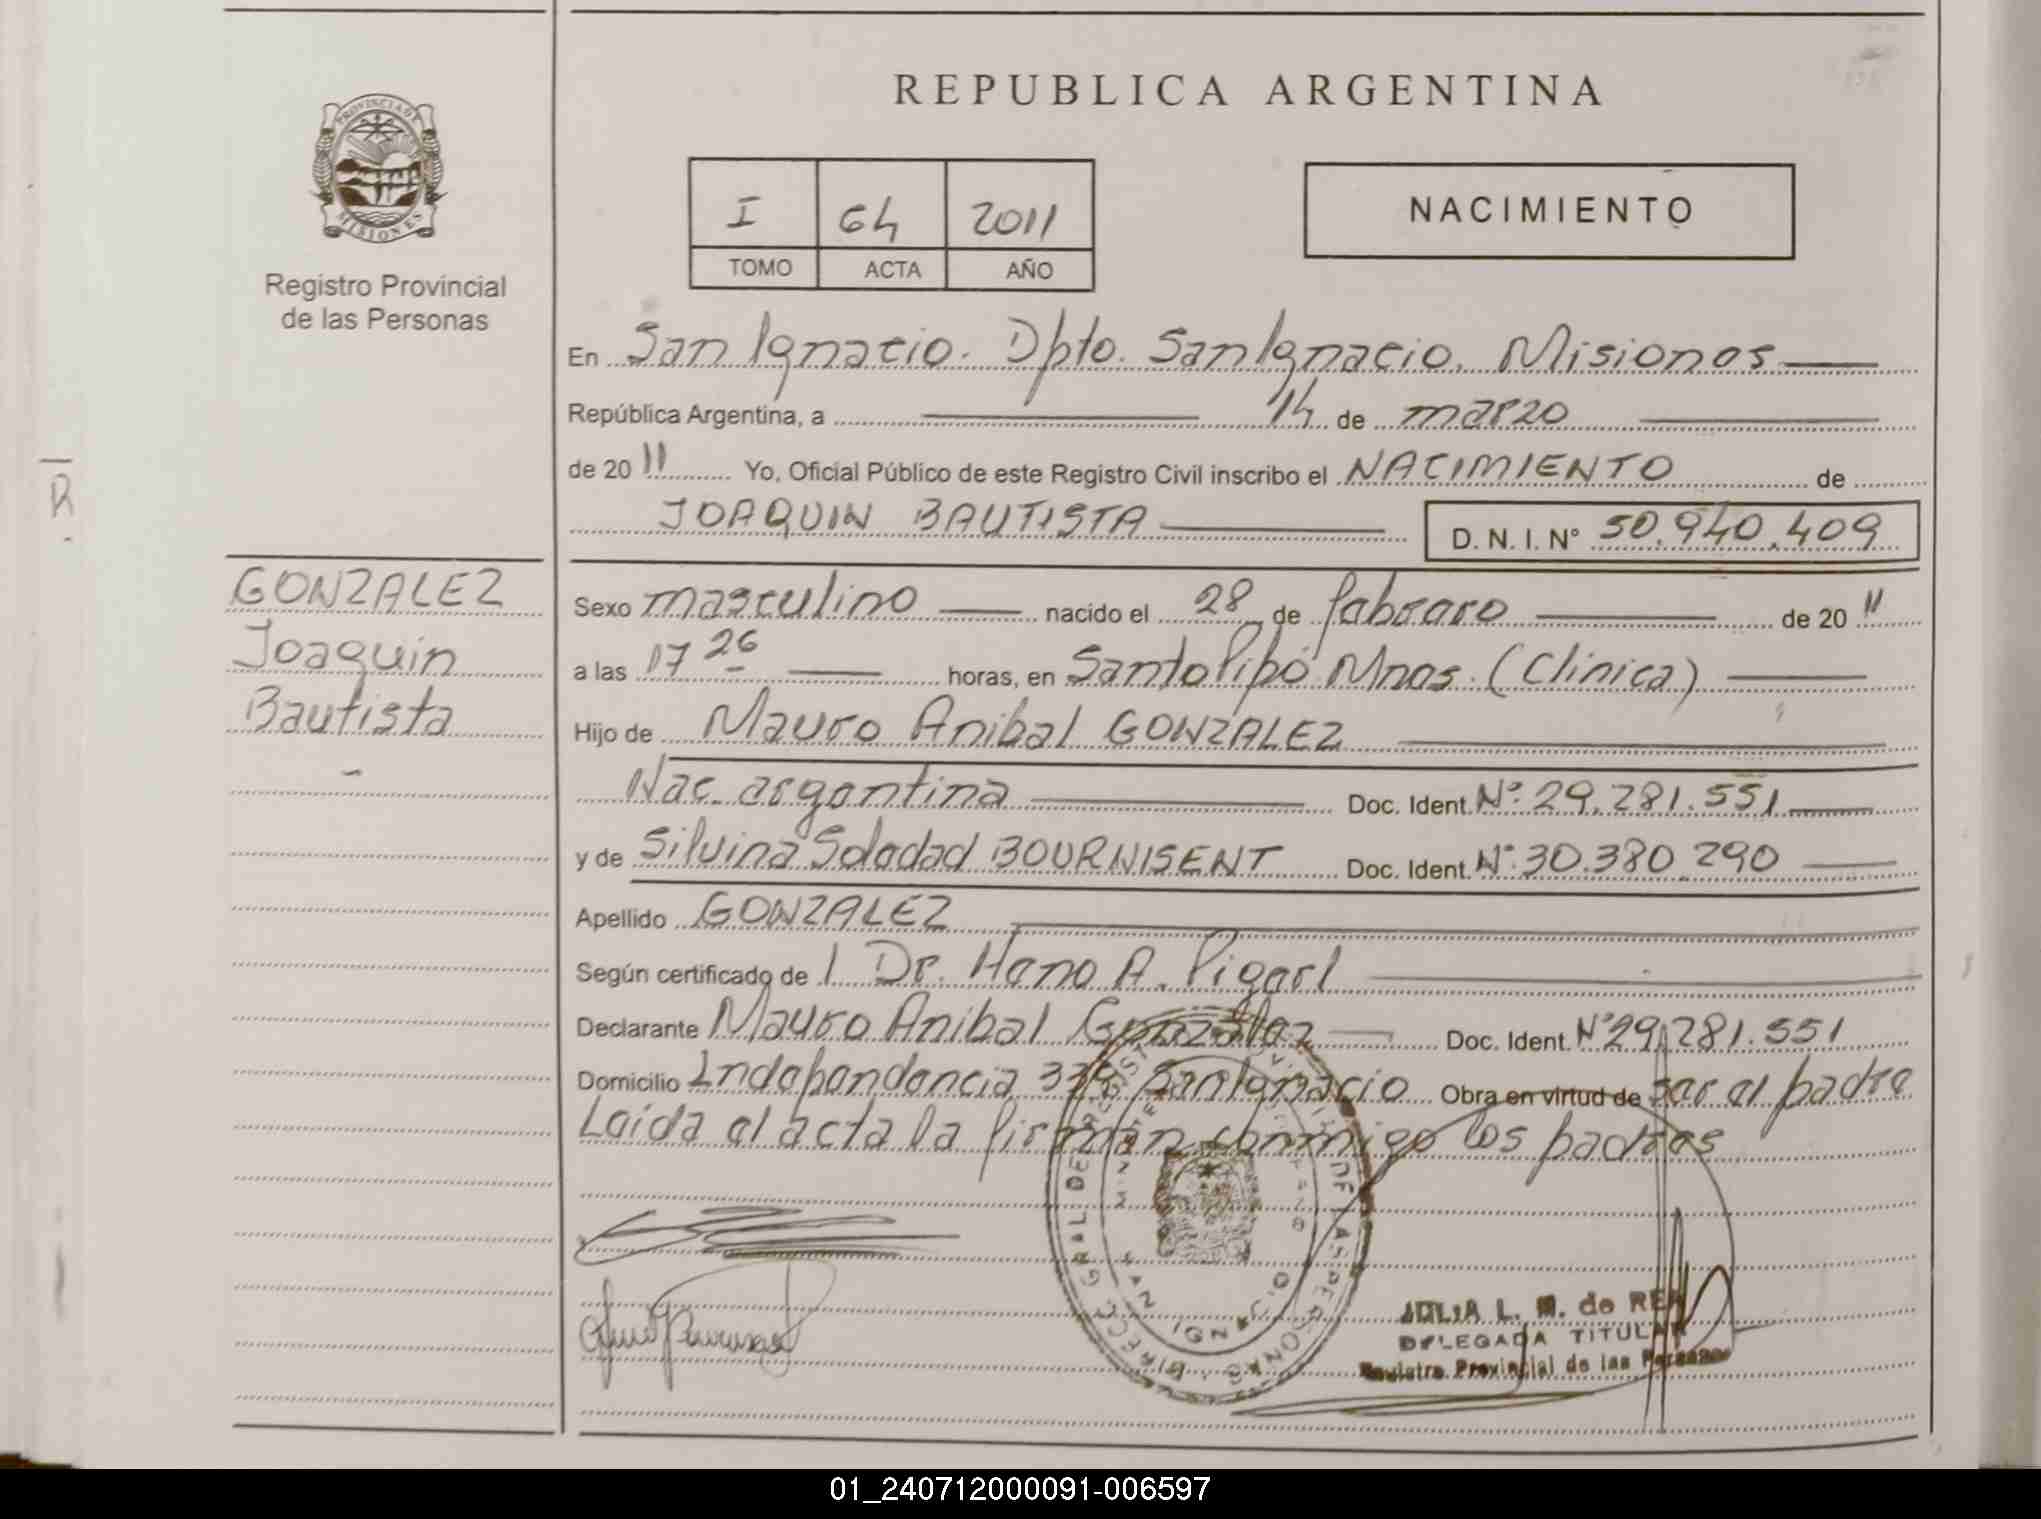 REPUBLICA ARGENTINA
PROVINCIA DE MISIONES
Registro Provincial
de las Personas
I 64 2011
TOMO ACTA AÑO
NACIMIENTO
En San Ignacio. Dpto. San Ignacio. Misiones
República Argentina, a 14 de marzo
de 20 11 Yo, Oficial Público de este Registro Civil inscribo el NACIMIENTO de
JOAQUIN BAUTISTA D. N. I. N° 50.940.409
GONZALEZ
Joaquin
Bautista
Sexo masculino nacido el 28 de febrero de 20 11
a las 17 26 horas, en Santo Pipó Mnes. (Clinica)
Hijo de Mauro Anibal GONZALEZ
Nac. argentina Doc. Ident. N°: 29.281.551
y de Silvina Soledad BOURNISENT Doc. Ident. N°: 30.380.290
Apellido GONZALEZ
Según certificado de 1. Dr. Hano A.
Declarante Mauro Anibal Gonzalez Doc. Ident. N° 29.281.551
Domicilio Independencia San Ignacio Obra en virtud de ser el padre
Leida el acta la firman conmigo los padres
DIRECC. GRAL DE REGISTRO PROVINCIAL DE LAS PERSONAS
SAN IGNACIO
JULIA L. M. de REA
DELEGADA TITULAR
Registro Provincial de las Personas
R
01_240712000091-006597